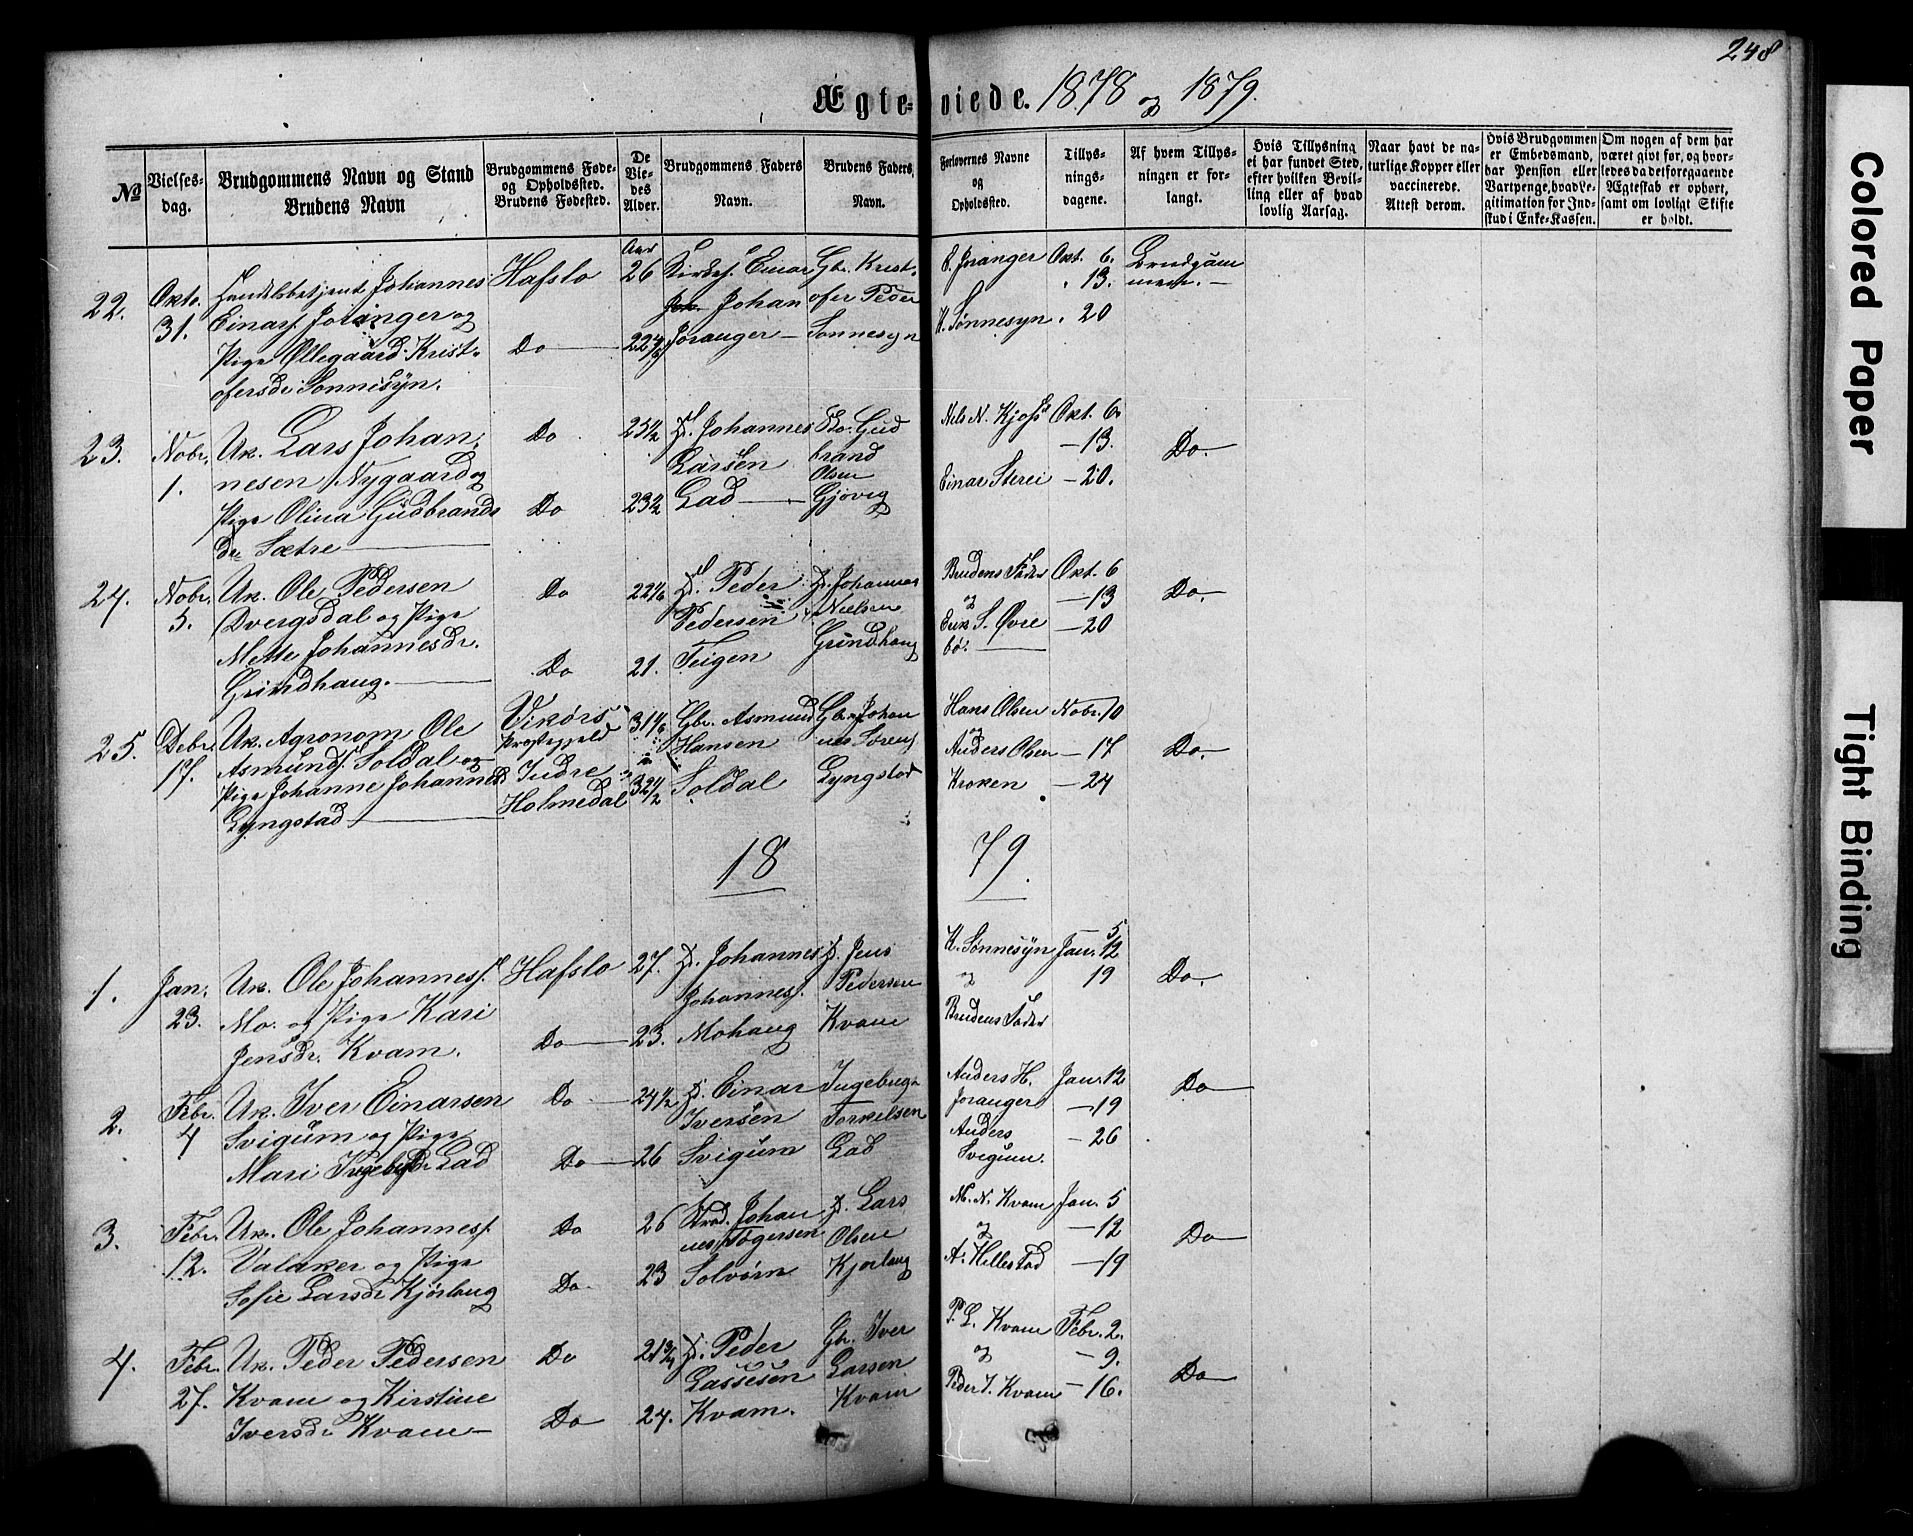 248
Ægteviede. 1878 og 1879.
No
Vielses-
dag.
Brudgommens Navn og Stand
Brudens Navn
Brudgommens Føde-
og Opholdssted.
Brudens Fødested.
De
Vie-
des
Alder.
Brudgommens Faders
Navn.
Brudens Faders
Navn.
Forlovernes Navne
og
Opholdssted.
Tillys-
nings-
dagene.
Af hvem Tillys-
ningen er for-
langt.
Hvis Tillysning
ei har fundet Sted,
efter hvilken Bevil-
ling eller af hvad
lovlig Aarsag.
Naar havt de na-
turlige Kopper eller
vaccinerede.
Attest derom.
Hvis Brudgommen
er Embedsmand,
har Pension eller
Vartpenge, hvad Le-
gitimation for Ind-
skud i Enke-Kassen.
Om nogen af dem har
været gift før, og hvor-
ledes da det foregaaende
Ægteskab er ophørt,
samt om lovligt Skifte
er holdt.
22.
Okto.
31.
Handelsbetjent Johannes
Einars. Joranger og
Pige Ollegaard Krist-
ofersdr Sønnesyn.
Hafslo
Do
Aar
26
22
Einar
Johan
Joranger
Gbr. Krist-
ofer Peder
Sønnesyn
E. Joranger
K. Sønnesyn
Okt. 6.
. 13.
. 20
Brudgom
men.
23.
Nobr.
1.
Uk. Lars Johan-
nesen Nygaard og
Pige Olina Gudbrands
dr. Sætre
Do
Do
25 1/2
23 1/2
P. Johannes
Larsen
Lad
Gud
brand
Olsen
Gjøvig
Nels N. Kjos
Einar Sterei
Okt. 6
- 13.
- 20.
Do.
24.
Nobr.
5.
Uk. Ole Pedersen
Dvergsdal og Pige
Mette Johannesdr.
Grindhaug.
Do
Do
22
21.
P. Peder
Pedersen
Teigen
P. Johannes
Nielsen
Grindhaug
Brudens Fader
og
Erik S. Øvre
bø.
Okt. 6
- 13
- 20
Do.
25.
Debr.
17.
Uk. Agronom Ole
Asmunds. Soldal og
Pige Johanne Johannesd
Lyngstad
Vikørs
Prostegjeld
Indre
Holmedal
31
32 1/2
Gbr. Asmund
Hansen
Soldal
Gbr. Johan
nes Sørens
Lyngstad
Hans Olsen
og
Anders Olsen
Kroken
Nobr. 10
- 17
- 24
Do.
18 79.
1.
Jan.
23.
Uk. Ole Johannes.
Mo. og Pige Kari
Jensdr. Kvam.
Hafslo
Do
27.
23.
P. Johannes
Johannes.
Mohaug
P. Jens
Pedersen
Kvam
K. Sønnesyn
og
Brudens Fader
5
Jan. 12
19
Do.
2.
Febr.
4
Uk. Iver Einarsen
Svigum og Pige
Mari Ingebrgdr Lad
Do
Do
24 1/2
26
P. Einar
Iversen
Svigum
Ingebrigt
Torkelsen
Lad
Anders H.
Joranger
Anders
Svigum.
Jan. 12
- 19
- 26
Do
3.
Febr.
12.
Uk. Ole Johannes.
Valaker og Pige
Sofie Larsdr Kjørlaug
Do
Do
26
23
Strd. Johan
nes Togersen
Solvorn
P. Lars
Olsen
Kjørlaug
N. N. Kvam
og
A. Hillestad
Jan. 5
- 12
- 19
Do
4.
Febr.
27.
Uk. Peder Pedersen
Kvam og Kirstine
Iversdr Kvam
Do
Do
21 3/4
24.
P. Peder
Lassesen
Kvam.
Gbr. Iver
Larsen
Kvam
P. L. Kvam
og
Peder I. Kvam
Febr. 2.
- 9.
- 16.
Do
Colored Paper
Tight Binding